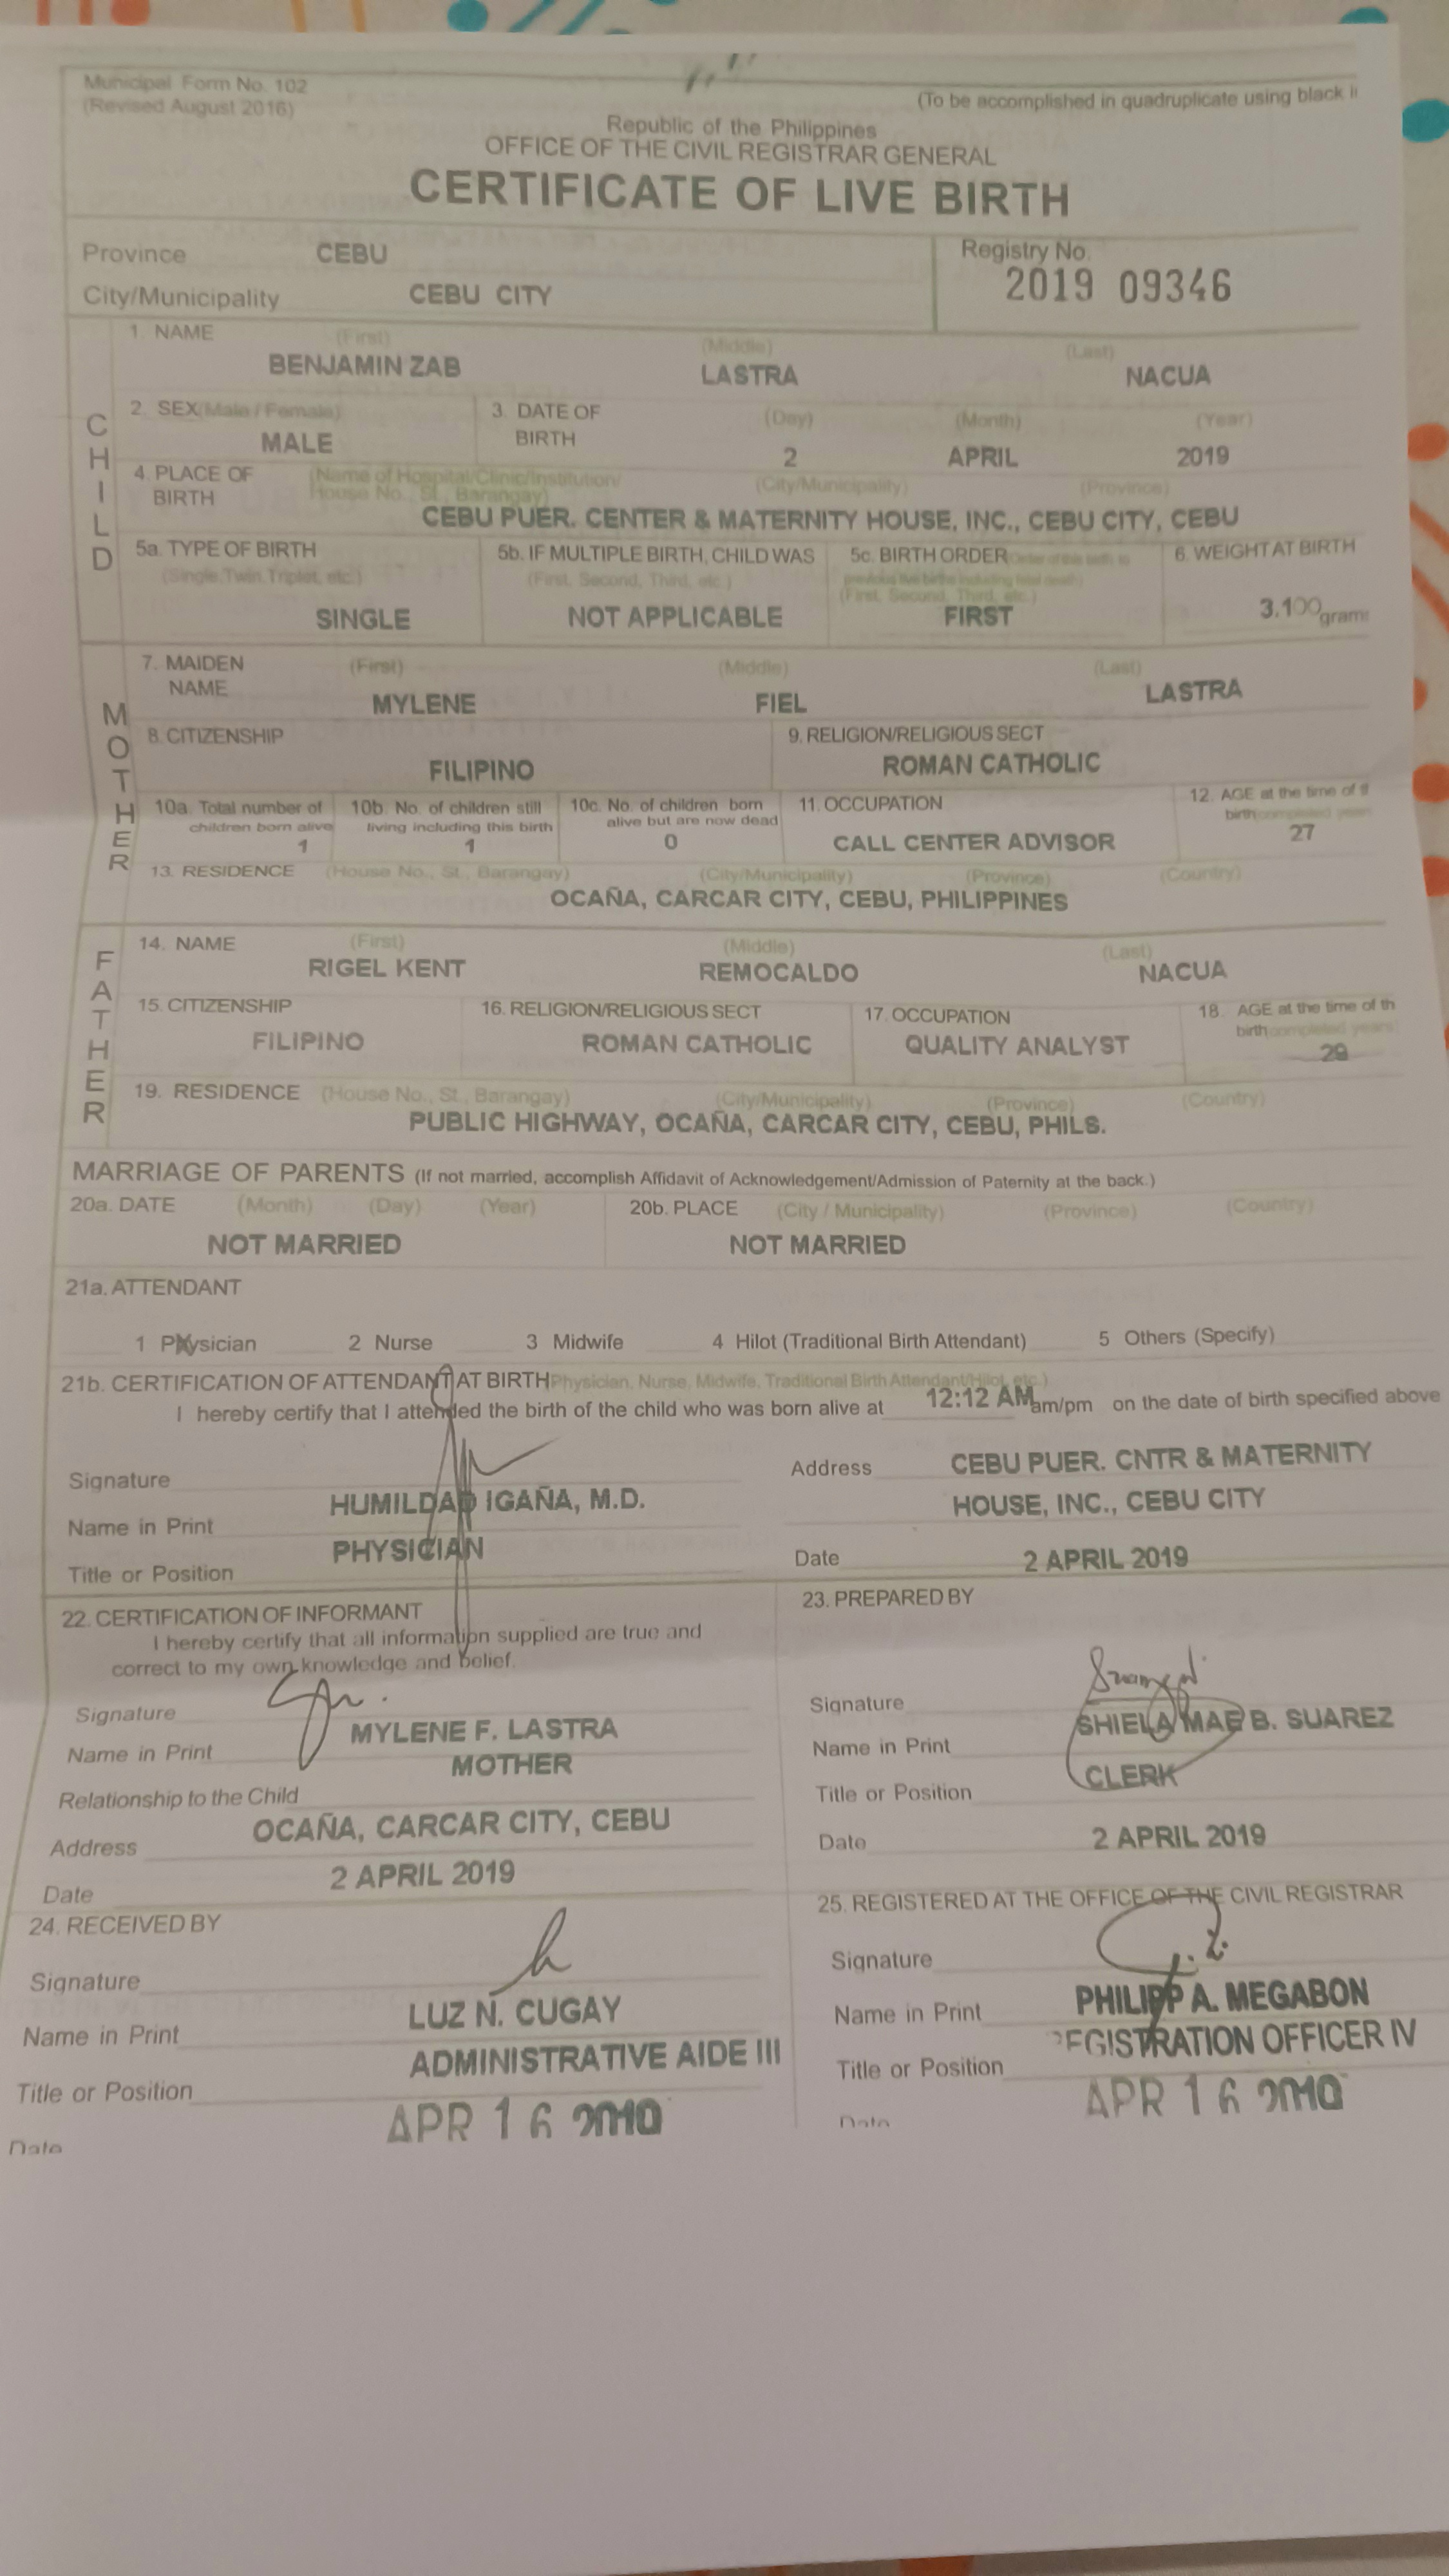 Municipal Form No. 102
(Revised August 2016)
(To be accomplished in quadruplicate using black
Republic of the Philippines
OFFICE OF THE CIVIL REGISTRAR GENERAL
CERTIFICATE OF LIVE BIRTH
Province CEBU
Registry No.
City/Municipality CEBU CITY
2019 09346
CHILD
1. NAME (First) (Middle) (Last)
BENJAMIN ZAB LASTRA NACUA
2. SEX (Male / Female) 3. DATE OF BIRTH (Day) (Month) (Year)
MALE 2 APRIL 2019
4. PLACE OF BIRTH (Name of Hospital/Clinic/Institution/ House No., St., Barangay) (City/Municipality) (Province)
CEBU PUER. CENTER & MATERNITY HOUSE, INC., CEBU CITY, CEBU
5a. TYPE OF BIRTH 5b. IF MULTIPLE BIRTH, CHILD WAS 5c. BIRTH ORDER 6. WEIGHT AT BIRTH
(Single, Twin, Triplet, etc.) (First, Second, Third, etc.) (First, Second, Third, etc.)
SINGLE NOT APPLICABLE FIRST 3.100 grams
MOTHER
7. MAIDEN NAME (First) (Middle) (Last)
MYLENE FIEL LASTRA
8. CITIZENSHIP 9. RELIGION/RELIGIOUS SECT
FILIPINO ROMAN CATHOLIC
10a. Total number of children born alive 10b. No. of children still living including this birth 10c. No. of children born alive but are now dead 11. OCCUPATION 12. AGE at the time of birth (completed years)
1 1 0 CALL CENTER ADVISOR 27
13. RESIDENCE (House No., St., Barangay) (City/Municipality) (Province) (Country)
OCAÑA, CARCAR CITY, CEBU, PHILIPPINES
FATHER
14. NAME (First) (Middle) (Last)
RIGEL KENT REMOCALDO NACUA
15. CITIZENSHIP 16. RELIGION/RELIGIOUS SECT 17. OCCUPATION 18. AGE at the time of th birth (completed years)
FILIPINO ROMAN CATHOLIC QUALITY ANALYST 29
19. RESIDENCE (House No., St., Barangay) (City/Municipality) (Province) (Country)
PUBLIC HIGHWAY, OCAÑA, CARCAR CITY, CEBU, PHILS.
MARRIAGE OF PARENTS (If not married, accomplish Affidavit of Acknowledgement/Admission of Paternity at the back.)
20a. DATE (Month) (Day) (Year) 20b. PLACE (City / Municipality) (Province) (Country)
NOT MARRIED NOT MARRIED
21a. ATTENDANT
1 Physician 2 Nurse 3 Midwife 4 Hilot (Traditional Birth Attendant) 5 Others (Specify)
21b. CERTIFICATION OF ATTENDANT AT BIRTH (Physician, Nurse, Midwife, Traditional Birth Attendant/Hilot, etc.)
I hereby certify that I attended the birth of the child who was born alive at 12:12 AM am/pm on the date of birth specified above
Signature Address CEBU PUER. CNTR & MATERNITY
Name in Print HUMILDAD IGAÑA, M.D. HOUSE, INC., CEBU CITY
Title or Position PHYSICIAN Date 2 APRIL 2019
22. CERTIFICATION OF INFORMANT
I hereby certify that all information supplied are true and
correct to my own knowledge and belief.
Signature
Name in Print MYLENE F. LASTRA
Relationship to the Child MOTHER
Address OCAÑA, CARCAR CITY, CEBU
Date 2 APRIL 2019
23. PREPARED BY
Signature
Name in Print SHIELA MAE B. SUAREZ
Title or Position CLERK
Date 2 APRIL 2019
24. RECEIVED BY
Signature
Name in Print LUZ N. CUGAY
Title or Position ADMINISTRATIVE AIDE III
Date APR 16
25. REGISTERED AT THE OFFICE OF THE CIVIL REGISTRAR
Signature
Name in Print PHILIPP A. MEGABON
Title or Position REGISTRATION OFFICER IV
Date APR 16